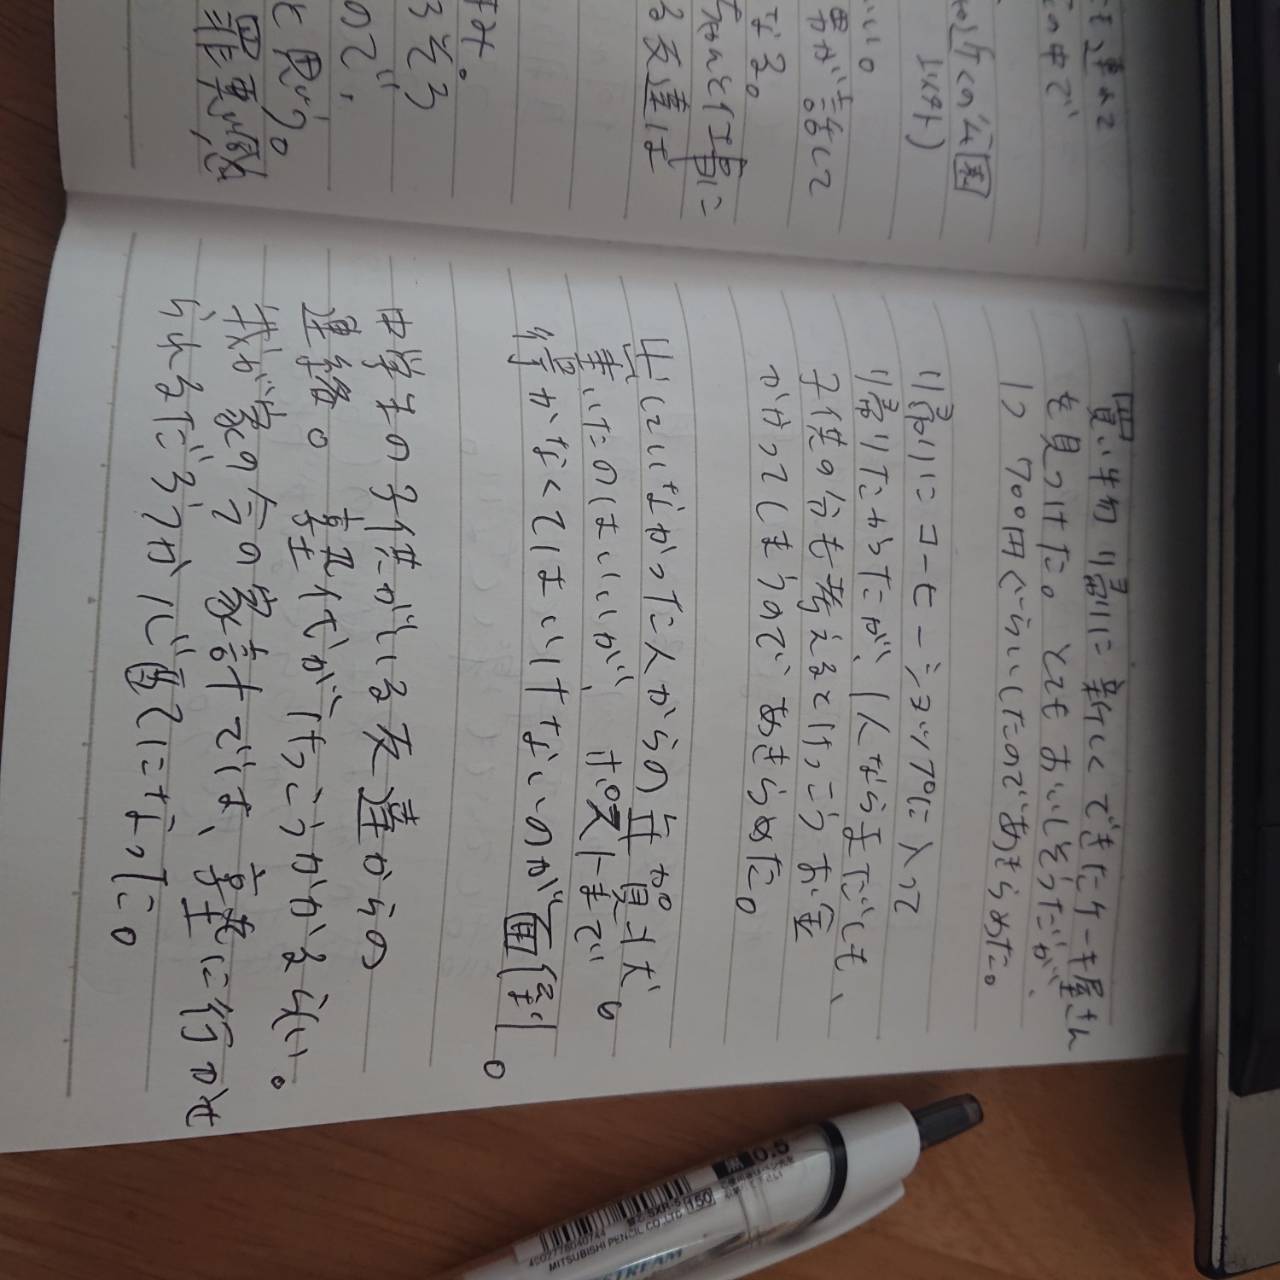 も連れて
の中で
の近くの公園
いい。
男が話して
なる。
ちゃんと仕事に
る友達は
すみ。
ろそろ
ので、
と思う。
罪悪感
買い物帰りに新しくできたケーキ屋さん
を見つけた。とてもおいしそうだが、
1つ700円ぐらいしたのであきらめた。
帰りにコーヒーショップに入って
帰りたかったが、1人ならまだしも、
子供の分も考えるとけっこうお金
かかってしまうのであきらめた。
出していなかった人からの年賀状。
書いたのはいいが、ポストまで
行かなくてはいけないのが面倒。
中学生の子供がいる友達からの
連絡。塾代がけっこうかかるらしい。
我が家の今の家計では、塾に行かせ
られるだろうか心配になった。
黒 0.5
150
4902778040744
MITSUBISHI PENCIL CO.,LTD
STREAM